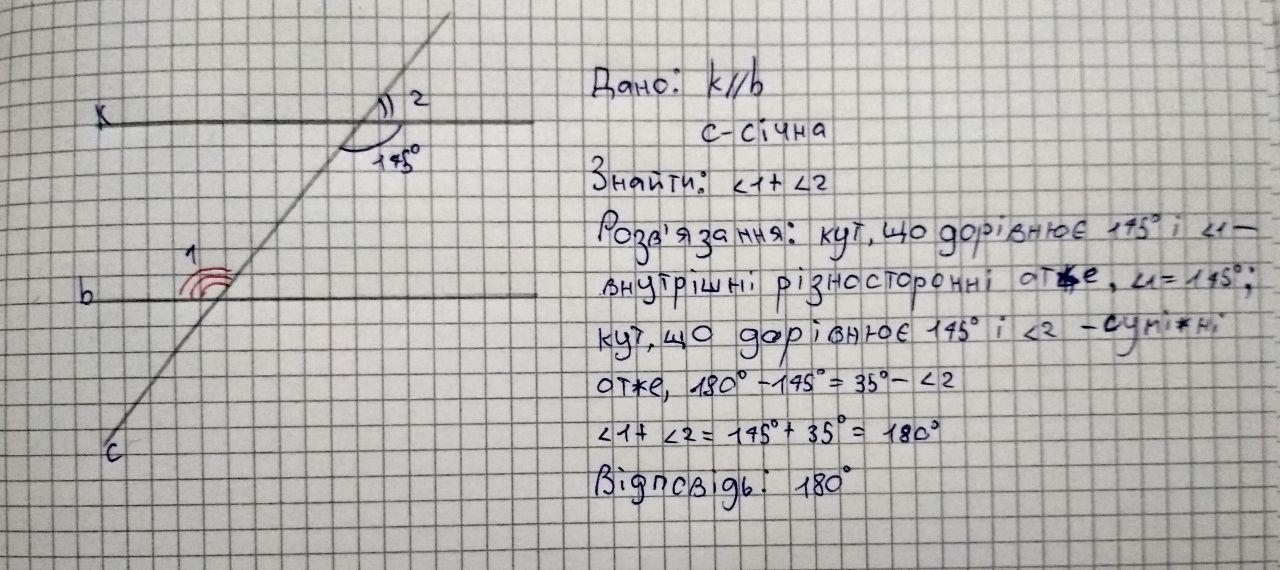 k
2
145°
1
b
c
Дано: k//b
c-січна
Знайти: <1+ <2
Розв'язання: кут, що дорівнює 145° і <1 –
внутрішні різносторонні отже, <1 = 145°;
кут, що дорівнює 145° і <2 - суміжні
отже, 180° - 145° = 35° - <2
<1 + <2 = 145° + 35° = 180°
Відповідь: 180°